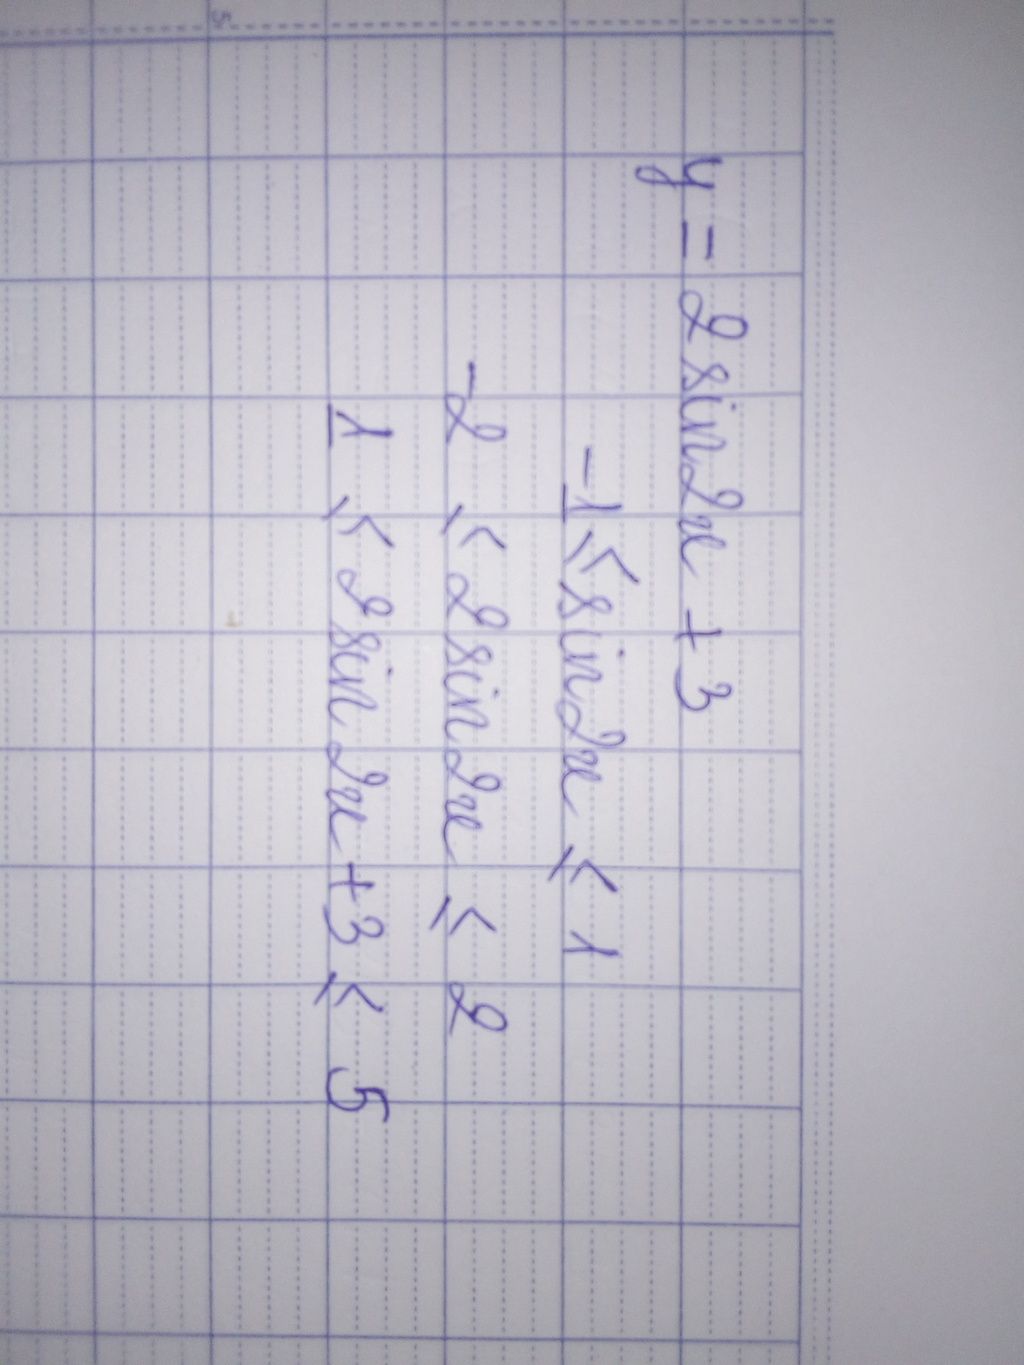 y = 2sin2x + 3
-1 ≤ sin2x ≤ 1
-2 ≤ 2sin2x ≤ 2
1 ≤ 2sin2x + 3 ≤ 5